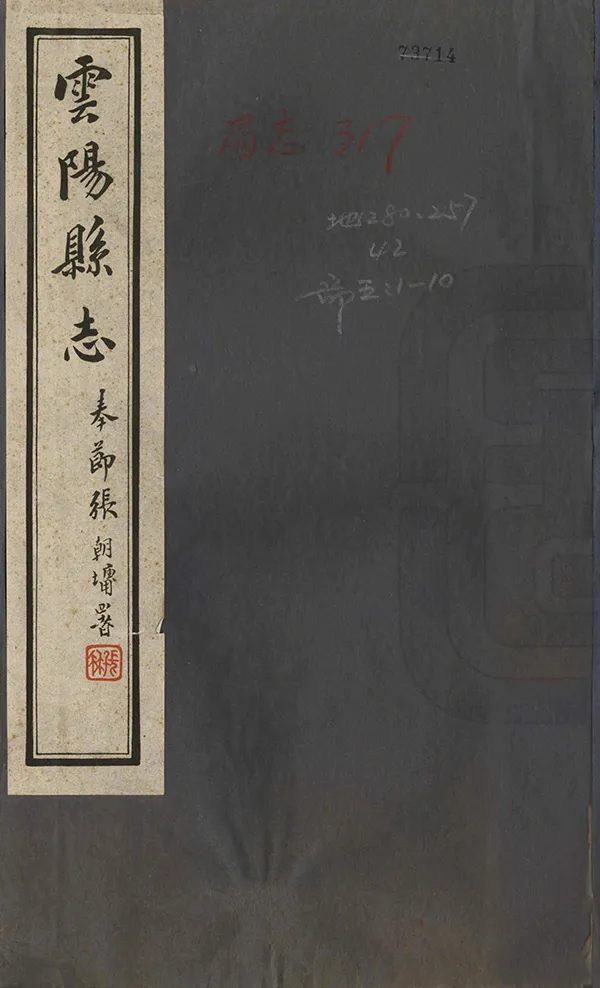 雲陽縣志
奉節張朝墉署
73714
志 317
地280.257
42
:1-10